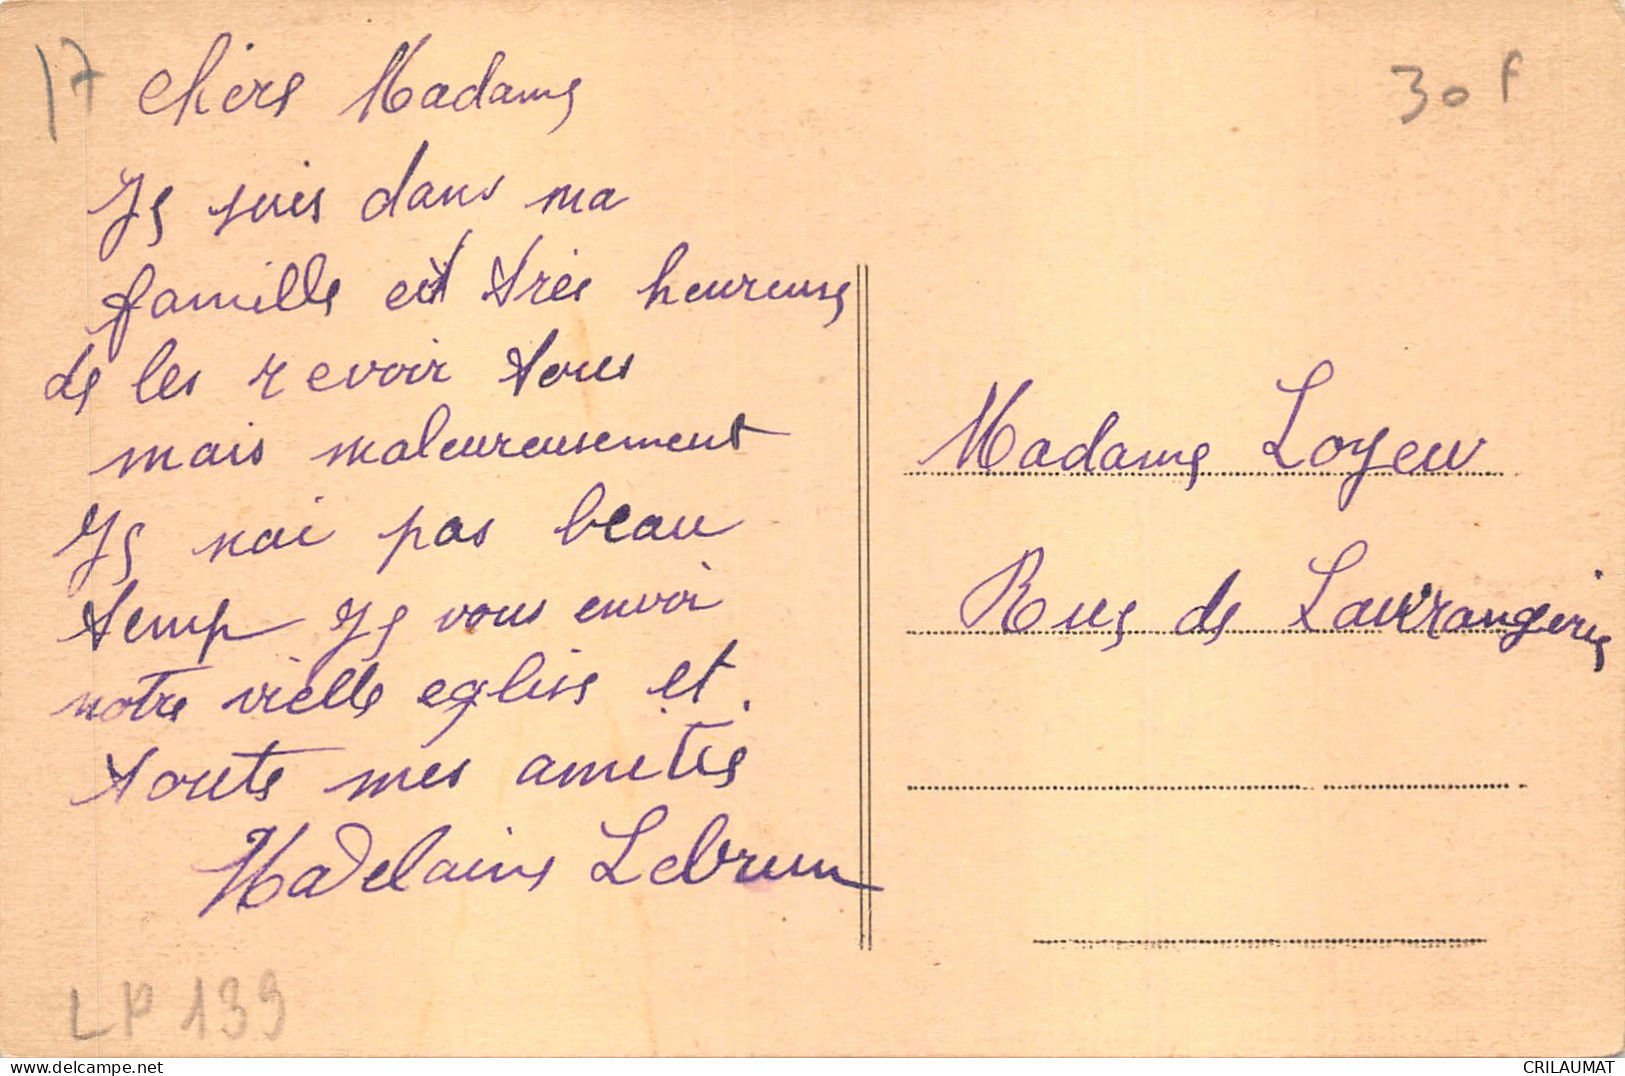 17
30 f
Chère Madame
Je suis dans ma
famille est très heureuse
de les revoir tous
mais maleureusement
Je nai pas beau
temp Je vous envoi
notre vielle eglise et
toute mes amitié
Madelaine Lebrun
Madame Loyeu
Rue de Laurrangerie
LP 139
delcampe.net
CRILAUMAT